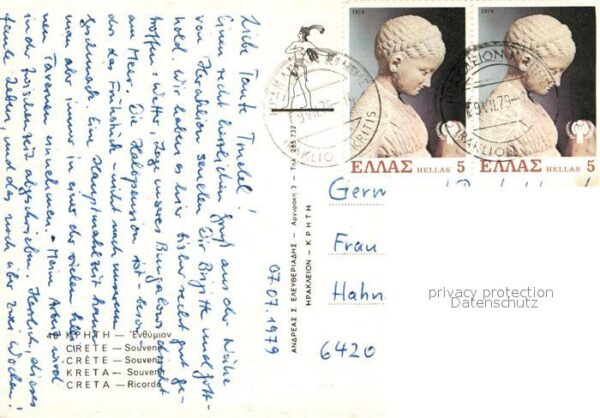 Liebe Tante Trudel!
Einen recht herzlichen Gruß aus der Nähe
von Heraklion senden Dir Brigitte und Gott-
hold. Wir haben es hier bisher recht gut ge-
troffen: Wetter, Lage unseres Bungalows direkt
am Meer. Die Halbpension ist - besonders
das Frühstück - nicht nach unserem
Geschmack. Eine Hauptmahlzeit kann
man aber immer in einer der vielen
Tavernen einnehmen. - Meine Arbeit wird
in der Zwischenzeit abgeschrieben. Herrlich, dieses
Leben, und das noch über zwei Wochen!
07.07.1979
48 ΚΡΗΤΗ — Ένθύμιον
CIRETE — Souvenir
CRÈTE — Souvenir
KRETA — Souvenir
CRETA — Ricordo
ΑΝΔΡΕΑΣ Σ. ΕΛΕΥΘΕΡΙΑΔΗΣ — Αργυράκη 3 — Τηλ. 285 732
ΗΡΑΚΛΕΙΟΝ - ΚΡΗΤΗ
1979
ΕΛΛΑΣ HELLAS 5
1979
ΕΛΛΑΣ HELLAS 5
Germ
Frau
Hahn
6420
privacy protection
Datenschutz